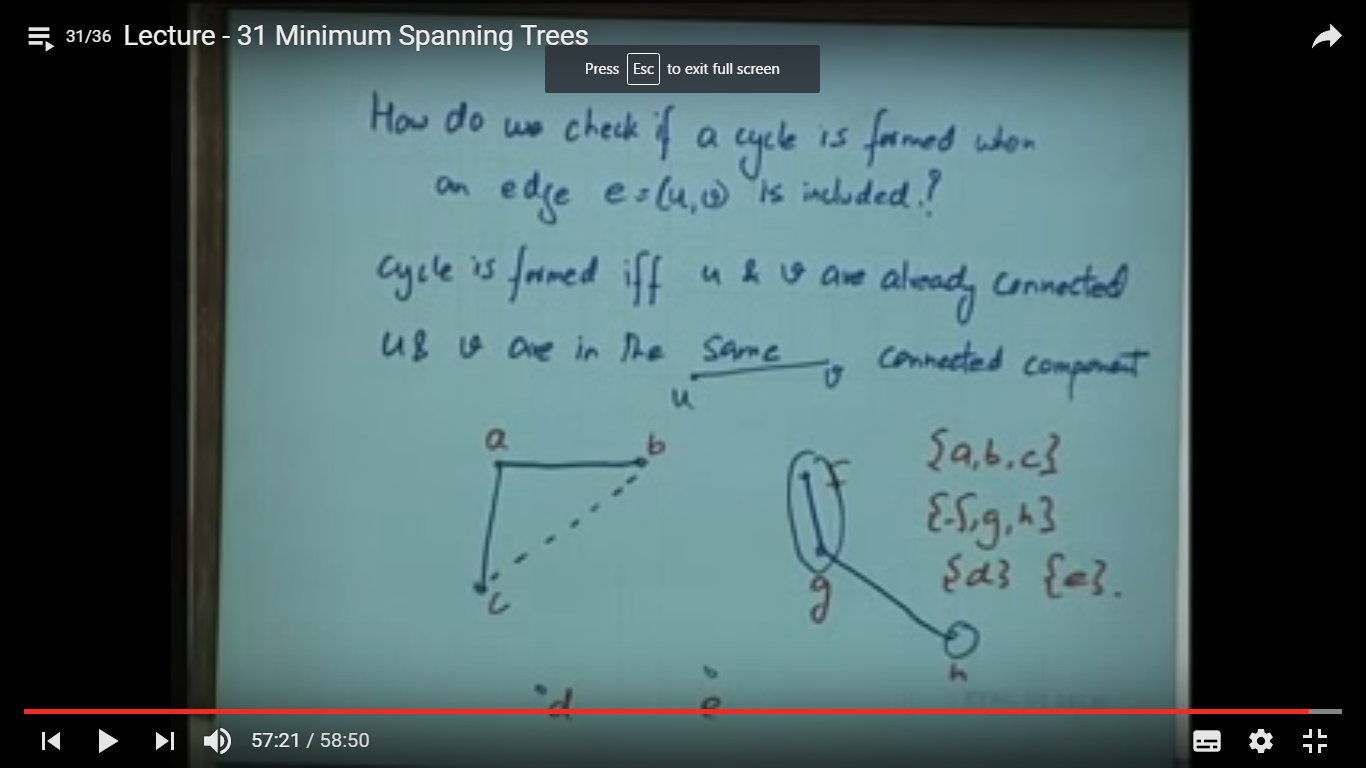 31/36 Lecture - 31 Minimum Spanning Trees
Press Esc to exit full screen
How do we check if a cycle is formed when
an edge e=(u,v) is included?
cycle is formed iff u & v are already connected
u & v are in the same connected component
u v
a b f {a,b,c}
{f,g,h}
c g {d} {e}.
h
d e
57:21 / 58:50